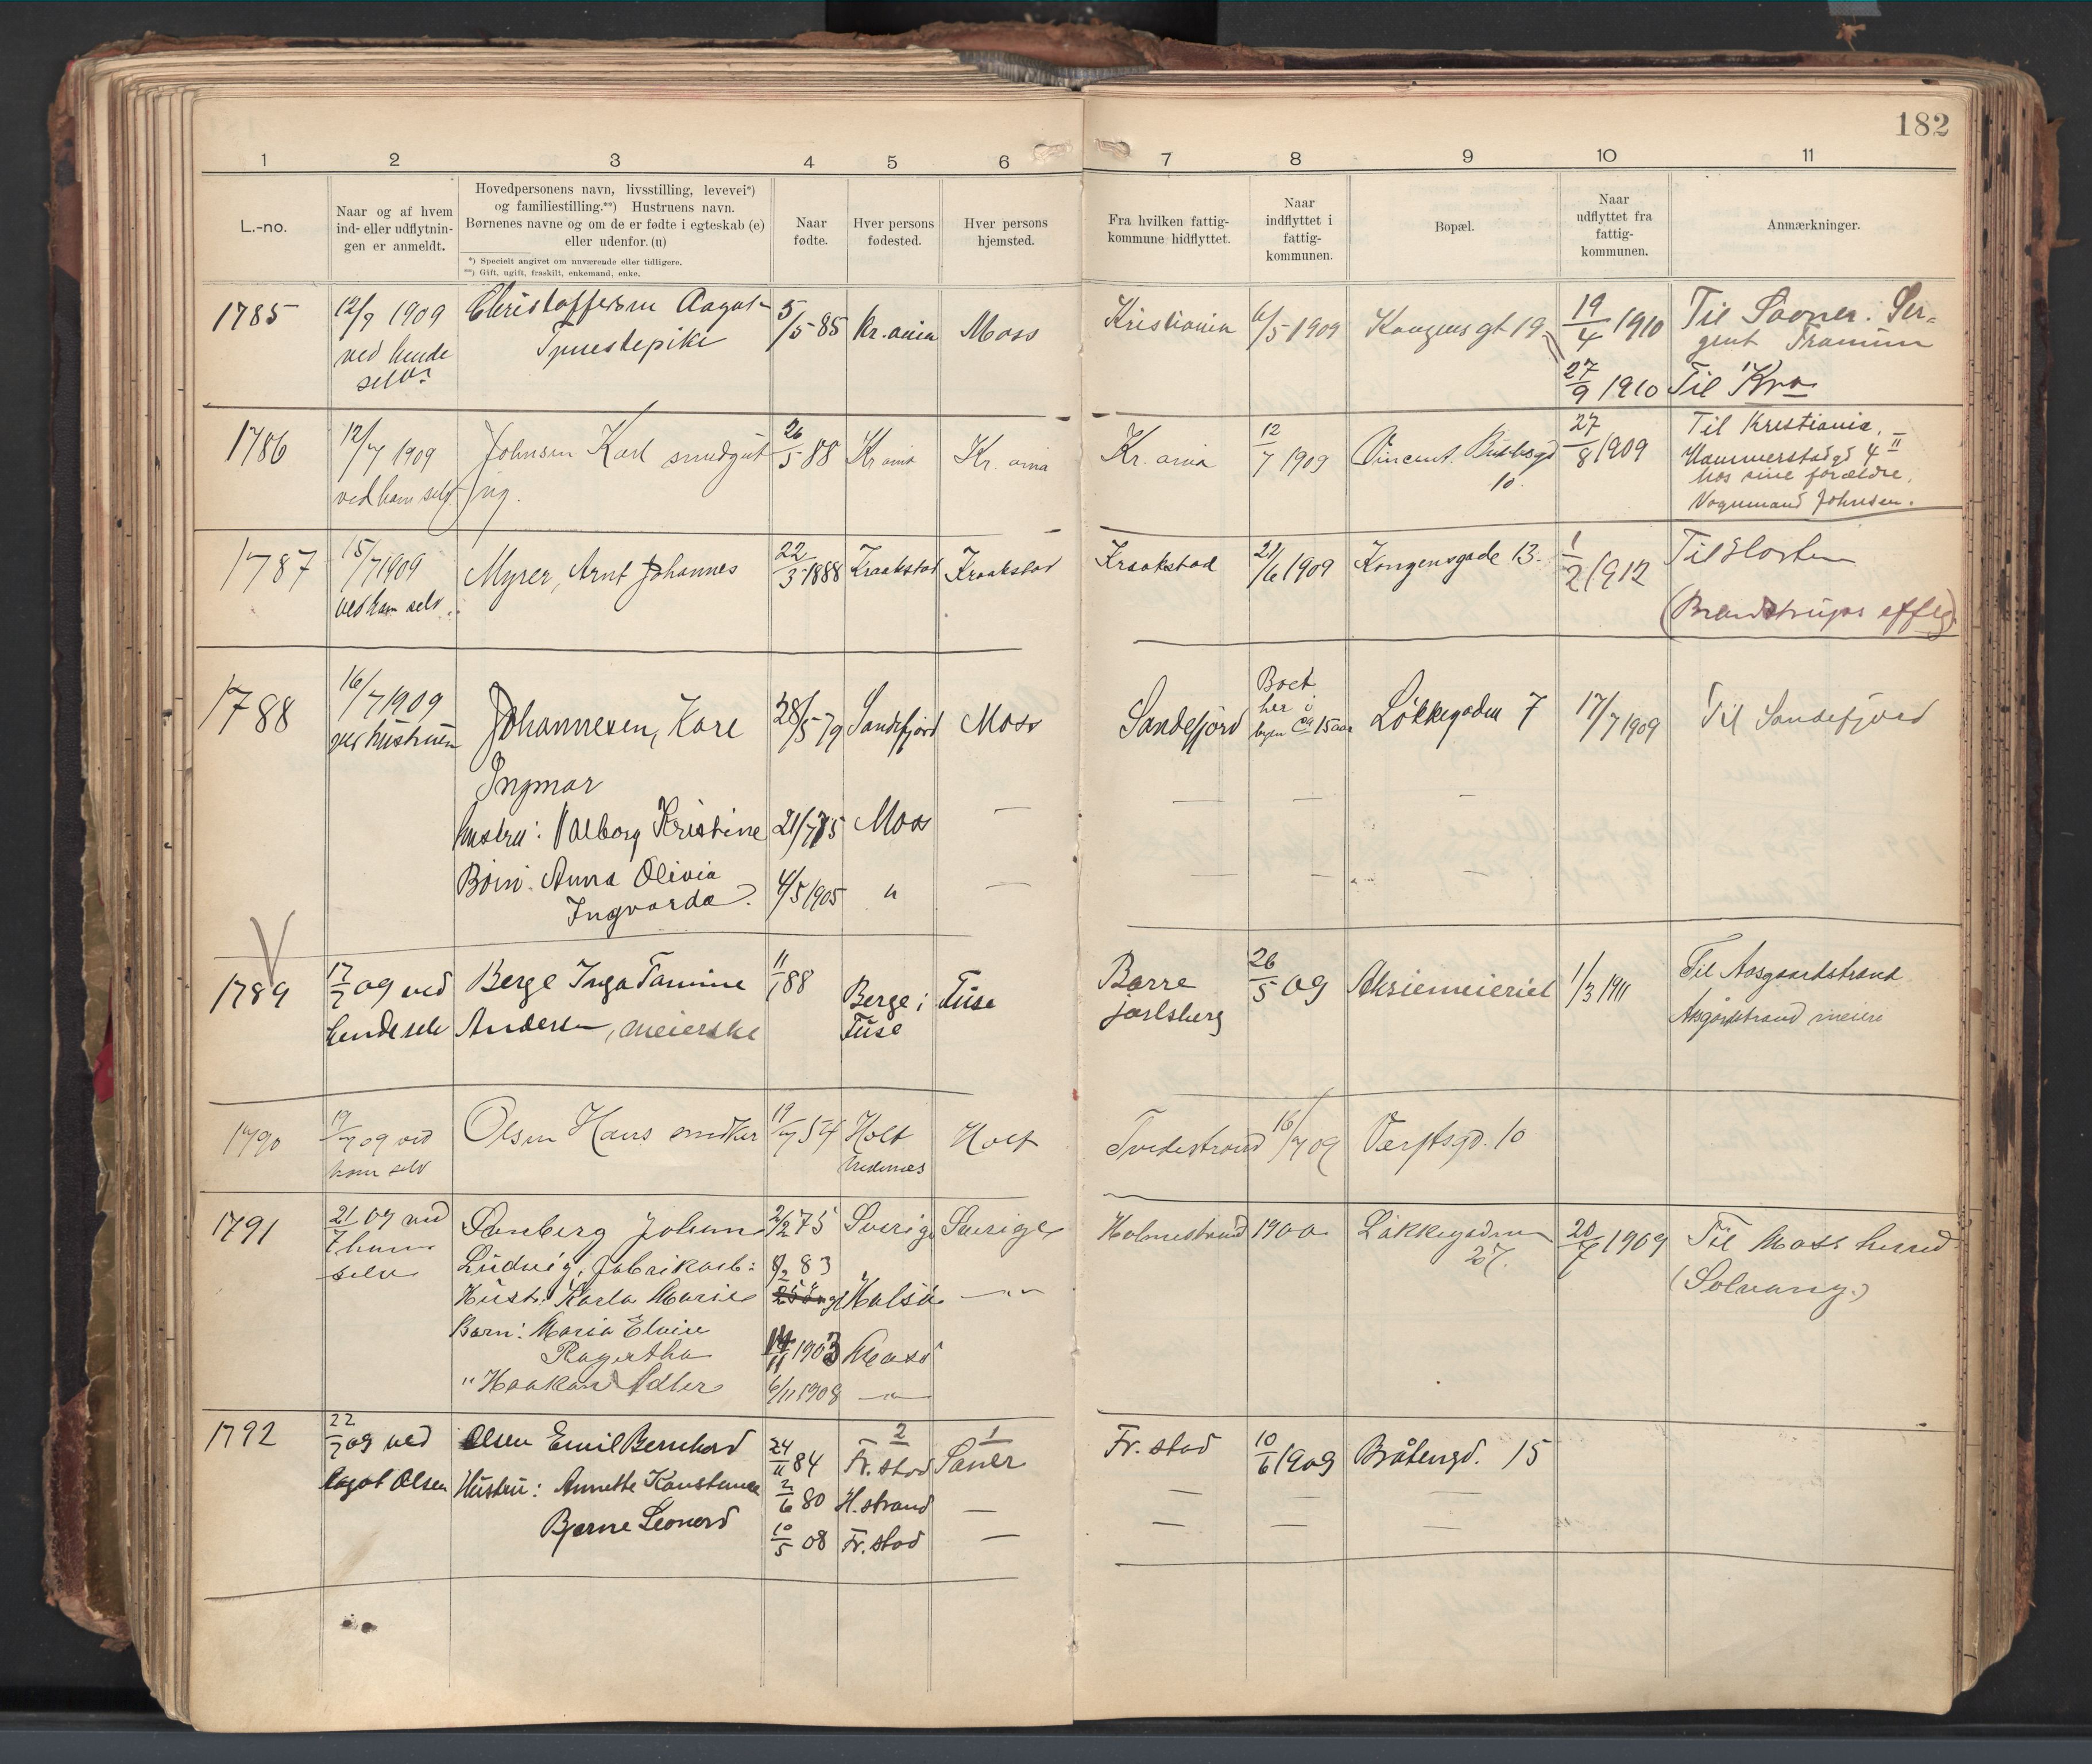 182
1 2 3 4 5 6 7 8 9 10 11
L.-no.
Naar og af hvem
ind- eller udflytnin-
gen er anmeldt.
Hovedpersonens navn, livsstilling, levevei*)
og familiestilling.**) Hustruens navn.
Børnenes navne og om de er fødte i egteskab (e)
eller udenfor. (u)
*) Specielt angivet om nuværende eller tidligere.
**) Gift, ugift, fraskilt, enkemand, enke.
Naar
fødte.
Hver persons
fødested.
Hver persons
hjemsted.
Fra hvilken fattig-
kommune hidflyttet.
Naar
indflyttet i
fattig-
kommunen.
Bopæl.
Naar
udflyttet fra
fattig-
kommunen.
Anmærkninger.
1785
12/7 1909
ved hende
selv
Christoffersen Aagot
Tjenestepike
5/5 85
Kr.ania
Moss
Kristiania
6/5 1909
Kongens gt 19
19/4 1910
Til Soner. Ser-
gent Framnum
27/9 1910
Til Kra
1786
12/7 1909
ved ham selv
Johnsen Karl smedgut
Ug.
26/5 88
Kr ania
Kr. ania
Kr. ania
12/7 1909
Vincent Buddesgd
10.
27/8 1909
Til Kristiania,
Hammerstadgd 4 II
hos sine forældre,
Vognmand Johnsen.
1787
15/7 1909
ved ham selv.
Myrer, Arnt Johannes
22/3 1888
Kraakstad
Kraakstad
Kraakstad
21/6 1909
Kongensgade 13.
1/2 1912
Til Horten
(Brandstrups efflg)
1788
16/7 1909
ved hustruen
Johannesen, Kare
Ingmar
28/5 79
Sandefjord
Moss
Sandefjord
Boet
her i
byen ca 15 aar
Løkkegaden 7
17/7 1909
Til Sandefjord
hustru: Valborg Kristine
21/7 85
Moss
—
— — —
Barn: Anna Olivia
Ingvarda.
4/5 1905
"
—
— — —
V
1789
17/7 09 ved
hende selv
Berge Inga Tamine
Andersen, meierske
11/1 88
Berge i
Fuse
Fuse
Borre
Jarlsberg
26/5 09
Aksiemeieriet
1/3 1911
Til Aasgaardstrand
Åsgårdstrand meieri
1790
19/7 09 ved
ham selv
Olsen Hans snedker
19/7 54
Holt
Nedenes
Holt
Tvedestrand
16/7 09
Værftsgd. 10
1791
21/7 09 ved
ham
selv
Sanberg Johan
Ludvig, fabrikarb:
2/2 75
Sverig
Sverige
Holmestrand
1900
Løkkegaden
27.
20/7 1909
Til Moss herred
(Solvang.)
Hustr. Karla Marie
8/2 83
Halsø
—"—
Barn: Maria Elvire
Ragertha
14/11 1903
Moss
" Haakon Adler
6/11 1908
—"—
1792
22/7 09 ved
Aagot Olsen
Olsen Emil Bernhard
24/11 84
2
Fr. stad
1
Saner
Fr. stad
10/6 1909
Bråtengd. 15
Hustru: Annette Konstance
2/6 80
H. strand
—
— — —
Bjarne Leonard
10/5 08
Fr. stad
—
— — —